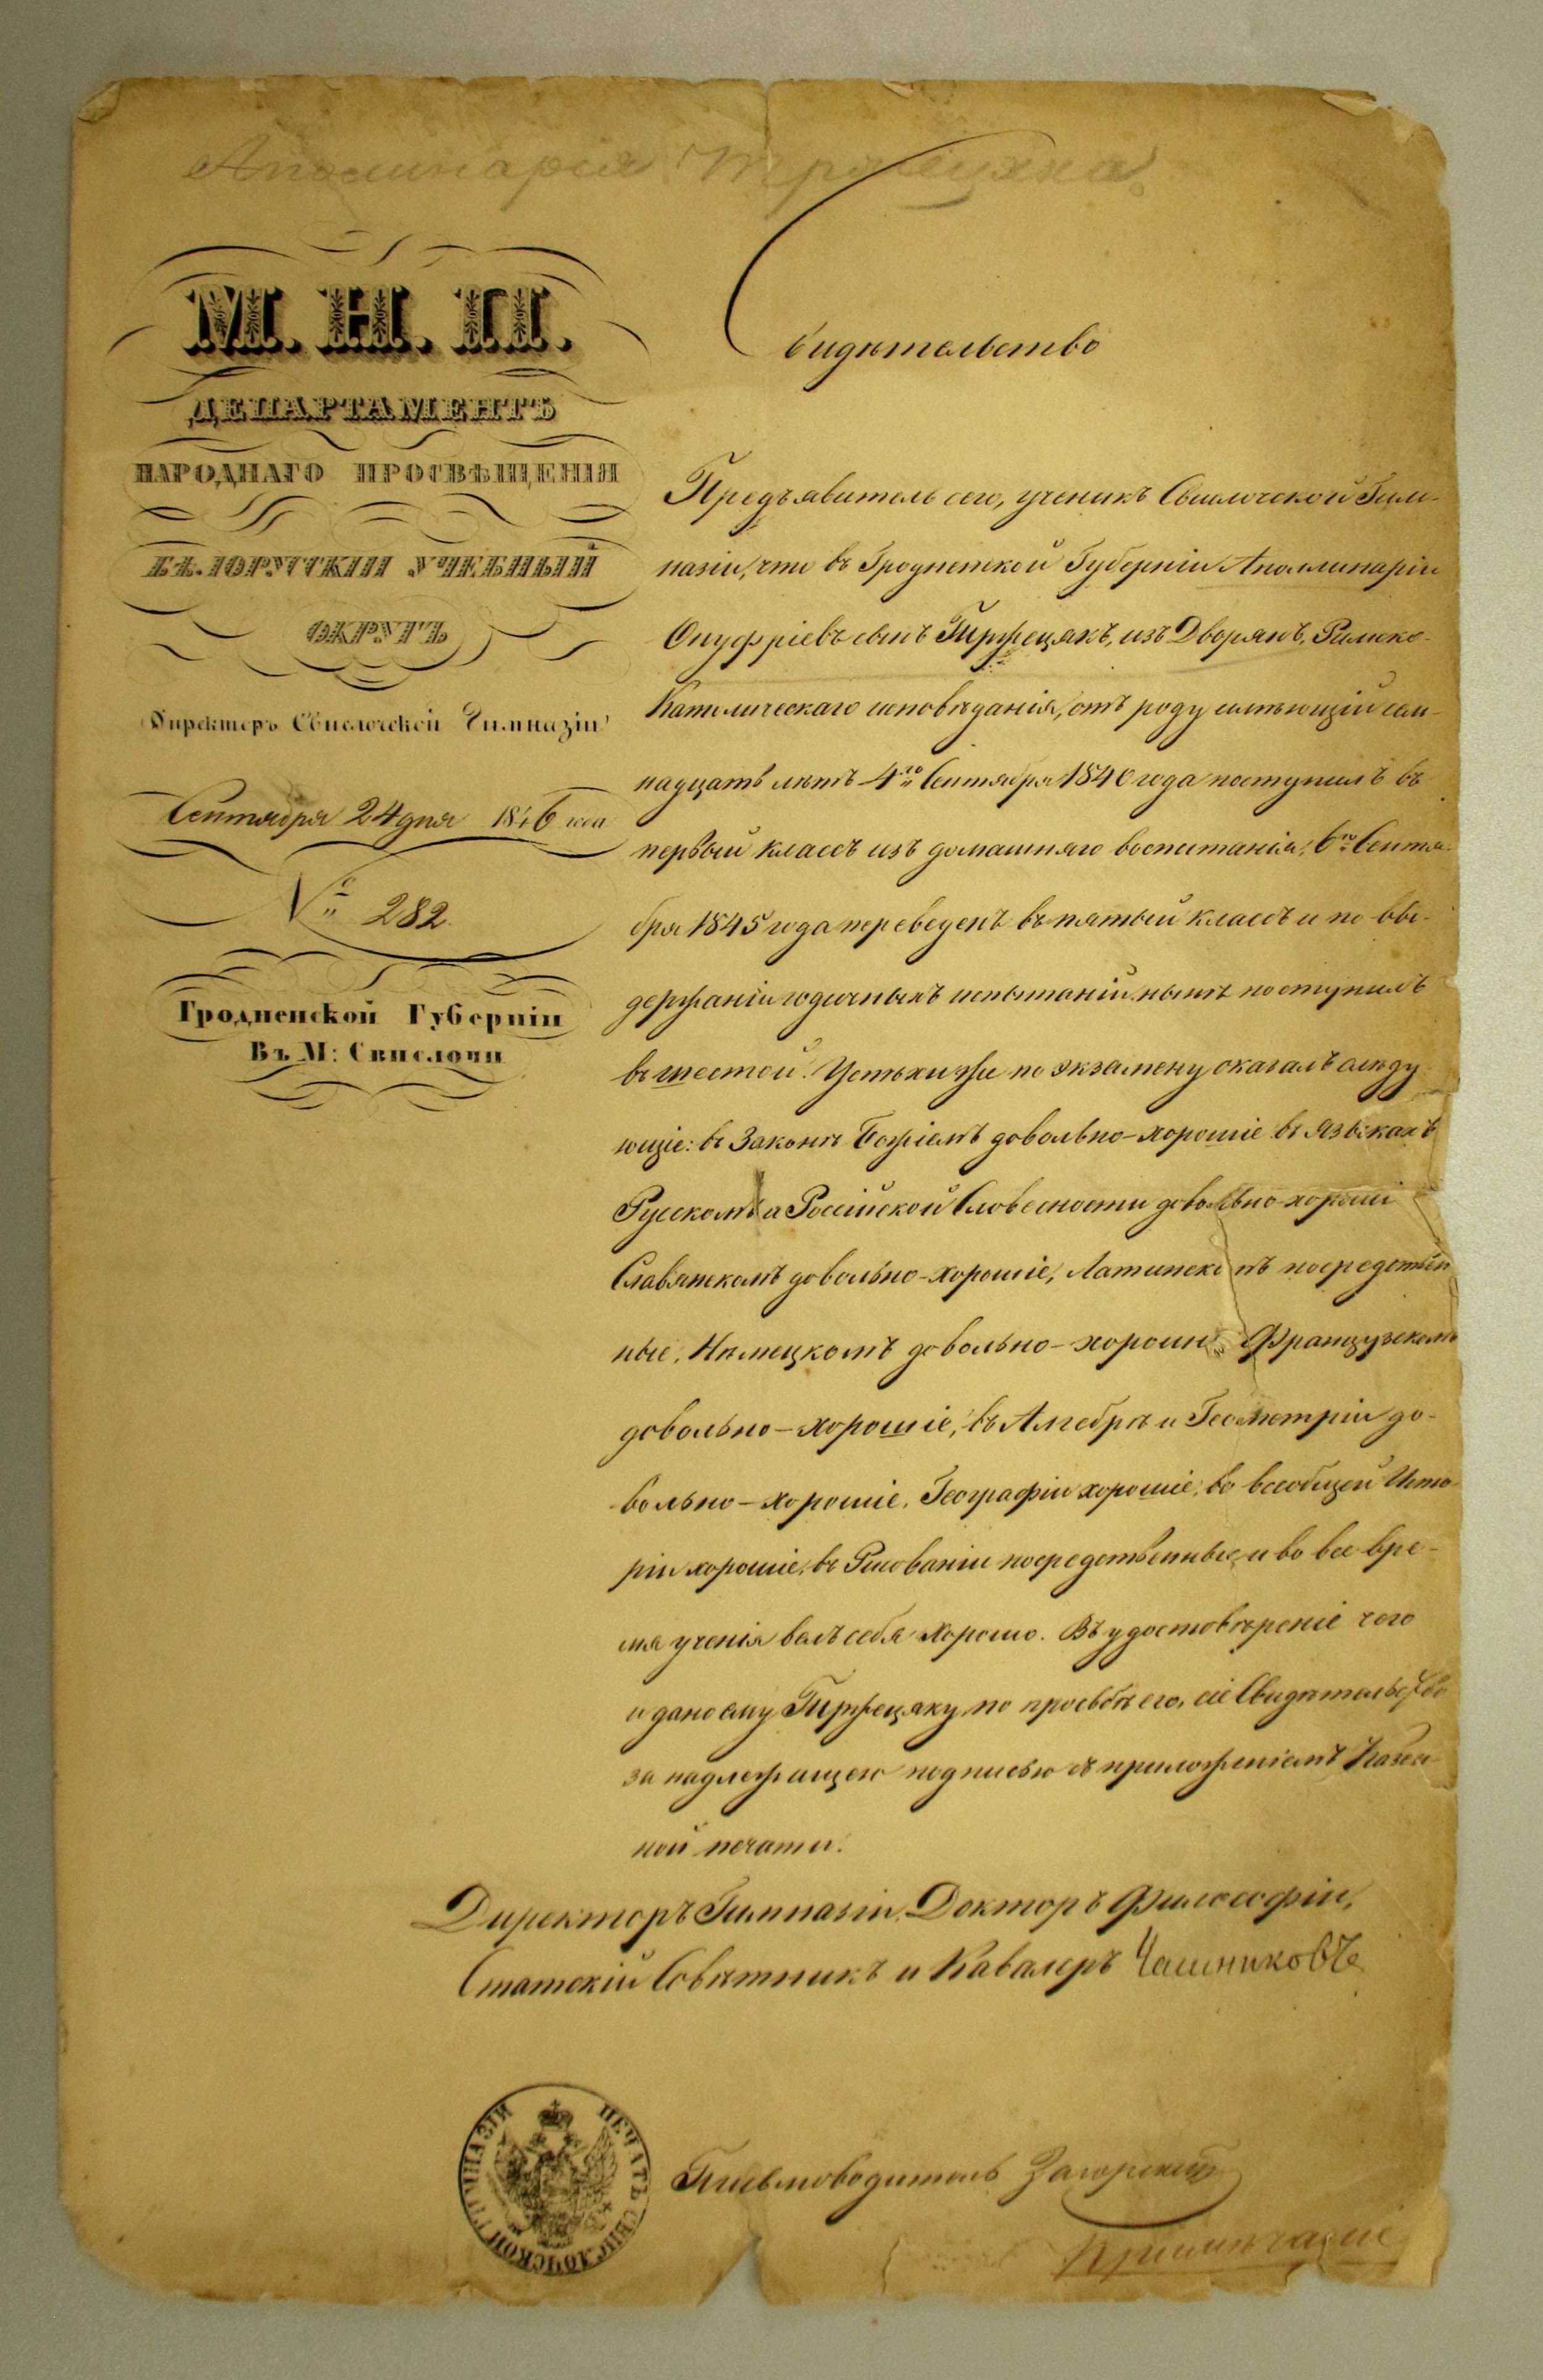 Аполинарія
М. Н. П.
ДЕПАРТАМЕНТЪ
НАРОДНАГО ПРОСВѢЩЕНІЯ
БѢЛОРУССКІЙ УЧЕБНЫЙ
ОКРУГЪ
Директоръ Свислочской Гимназіи
Сентября 24 дня 1846 года
№ 282.
Гродненской Губерніи
Въ М: Свислочи
Свидѣтельство
Предъявитель сего, ученикъ Свислочской Гим-
назіи, что въ Гродненской Губерніи Аполлинарій
Онуфріевъ сынъ Тржецякъ, изъ Дворянъ, Римско-
Католическаго исповѣданія, отъ роду имѣющій сем-
надцать лѣтъ 4го Сентября 1840 года поступилъ въ
первый классъ изъ домашняго воспитанія; 6го Сентя-
бря 1845 года переведенъ въ пятый классъ и по вы-
держаніи годичныхъ испытаній нынѣ поступилъ
въ шестой. Успѣхи же по экзамену оказалъ слѣду
ющіе: въ Законѣ Божіемъ довольно-хорошіе въ языкахъ
Русскомъ и Россійской Словесности довольно-хороші
Славянскомъ довольно-хорошіе, Латинско мъ посредствен
ные, Нѣмецкомъ довольно-хорошіе Французскомъ
довольно-хорошіе, въ Алгебрѣ и Геометріи до-
вольно-хорошіе, Географіи хорошіе, во всеобщей Исто-
ріи хорошіе, въ Рисованіи посредственные, и во все вре-
мя ученія велъ себя хорошо. Въ удостовѣреніе чего
и дано ему Тржецяку, по просьбѣ его, сіе Свидѣтельство
за надлежащею подписью съ приложеніемъ Казен-
ной печати.
Директоръ Гимназіи, Докторъ Философіи,
Статскій Совѣтникъ и Кавалеръ Чашниковъ
ПЕЧАТЬ СВИСЛОЧСКОЙ ГИМНАЗІИ
Письмоводитель Загорскій